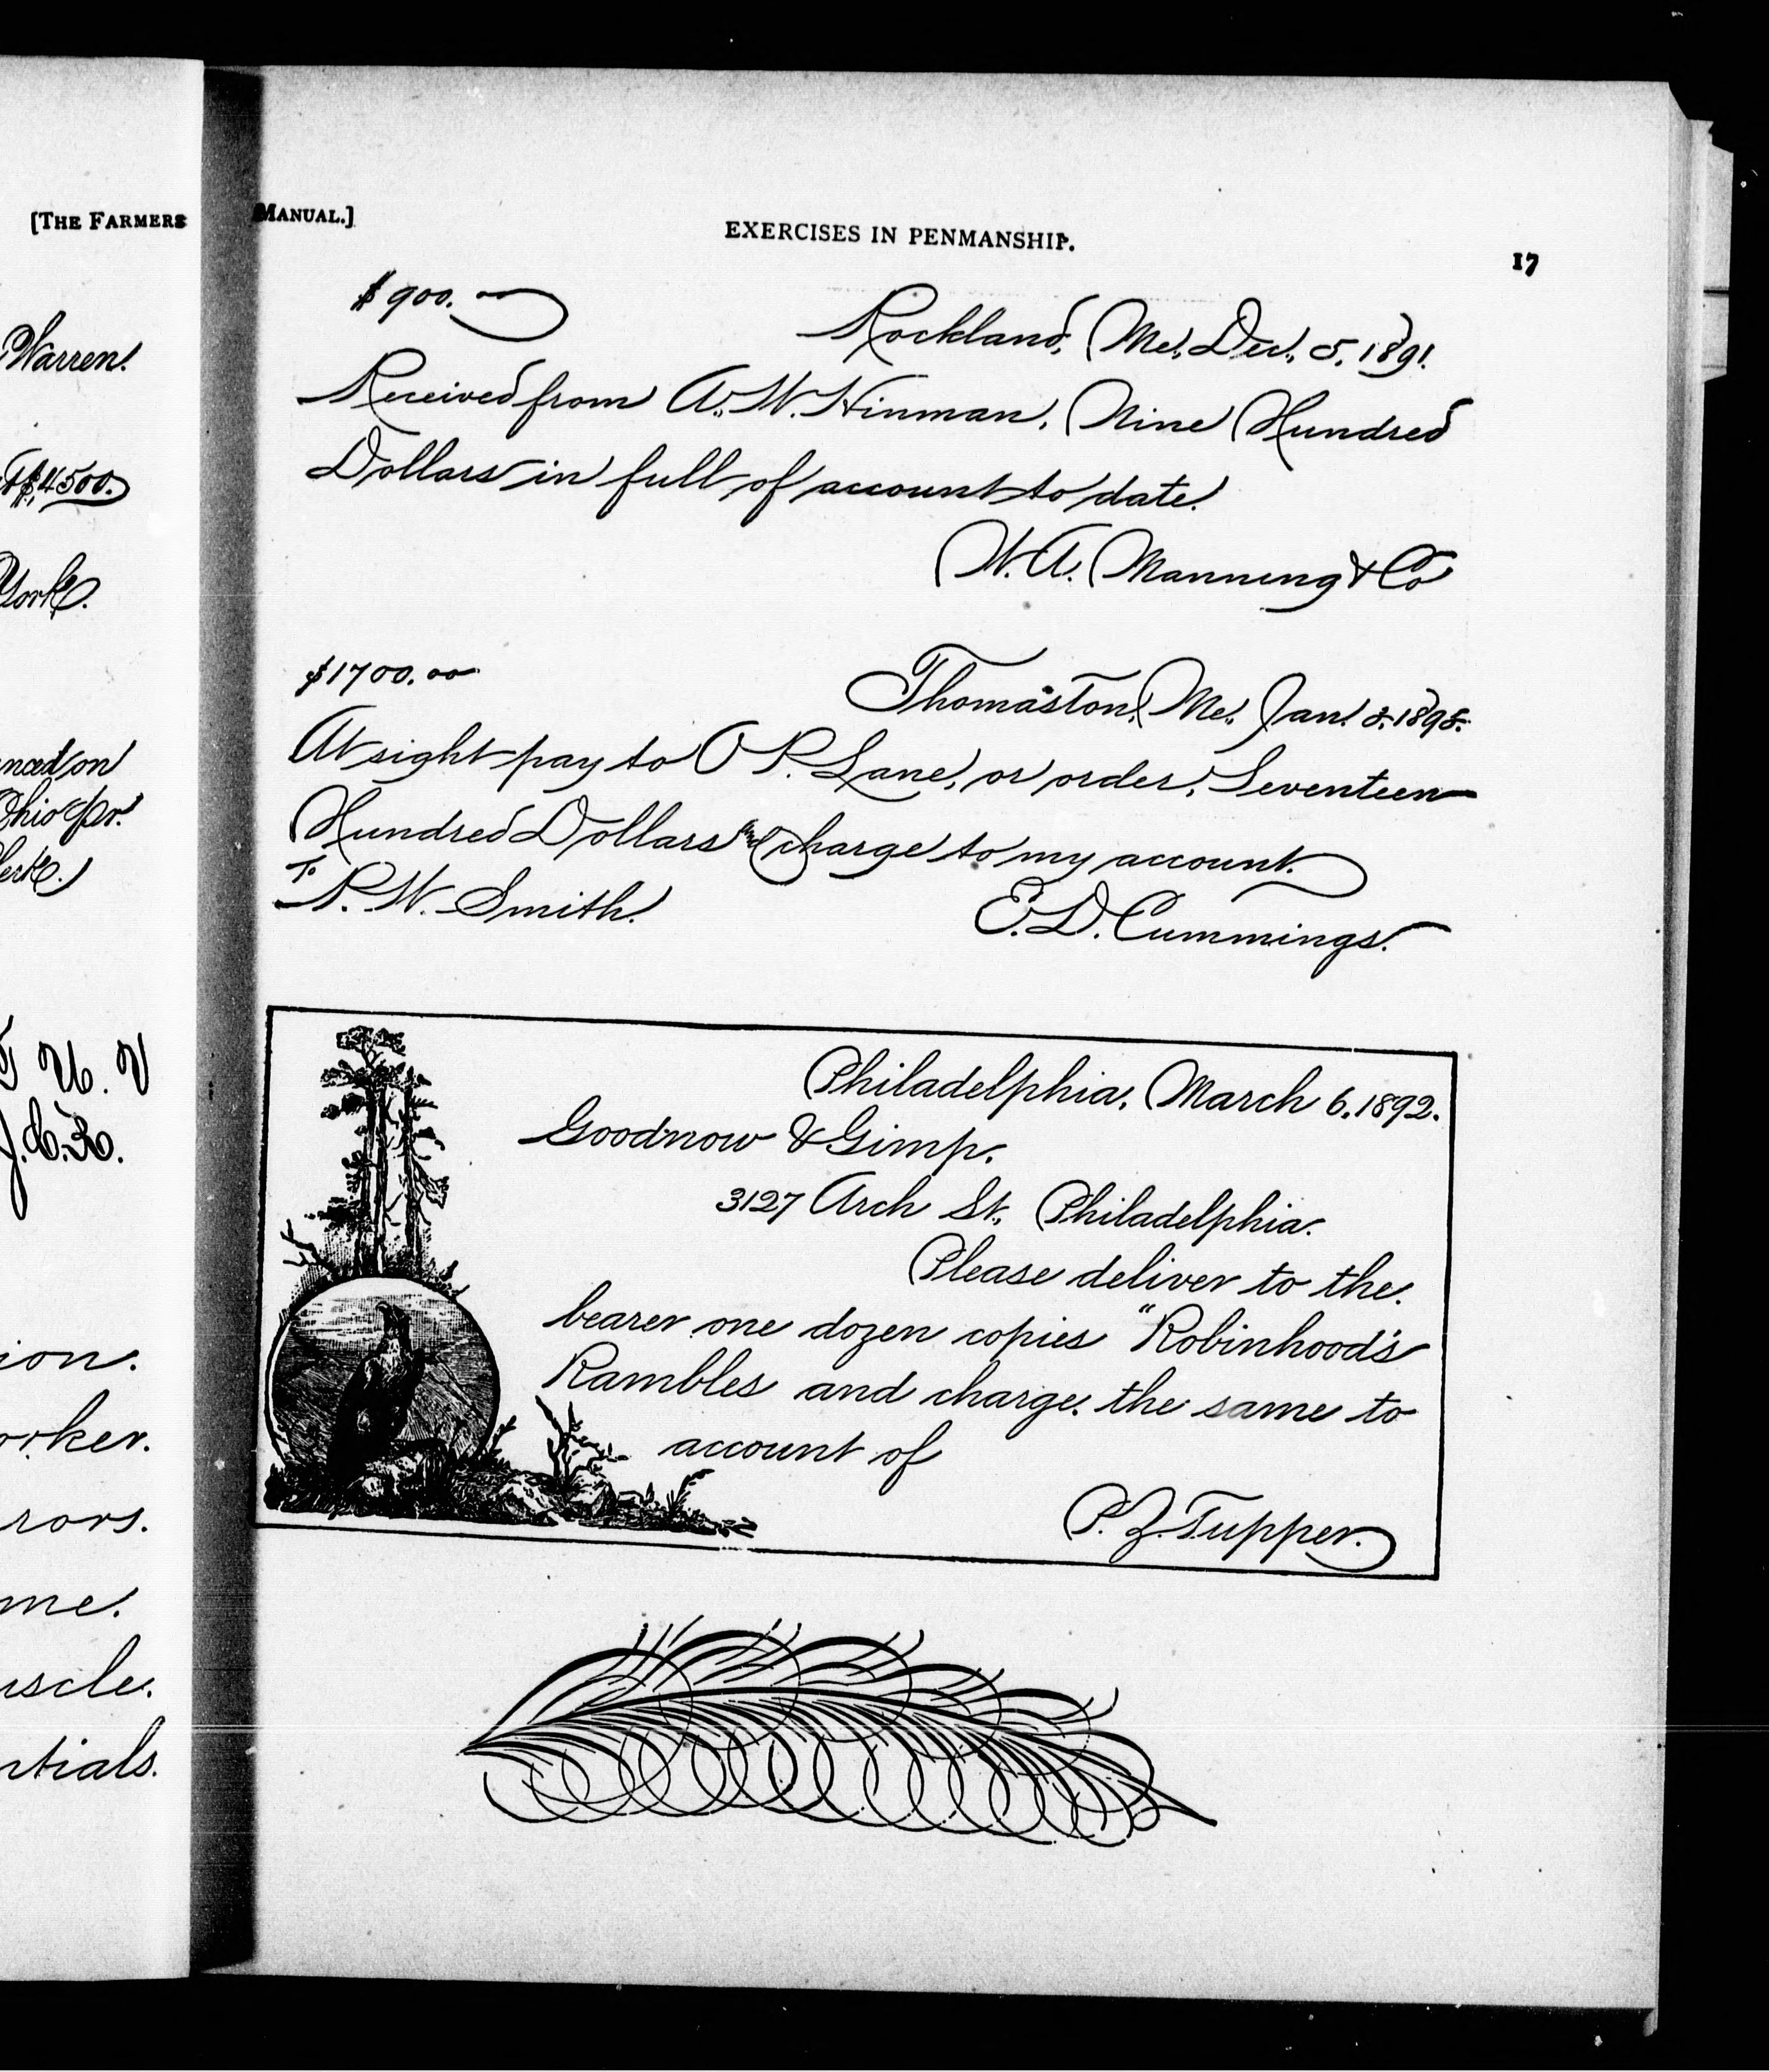 [THE FARMERS
Warren.
$4500.
York.
on
Ohio for
U. V
ion.
orker.
rors.
me.
uscle.
ntials.
MANUAL.]
EXERCISES IN PENMANSHIP.
17
$900.00
Rockland, Me., Dec., 5, 1891.
Received from A. W. Hinman, Nine Hundred
Dollars in full of account to date.
W. A. Manning & Co
$1700.00
Thomaston, Me., Jan. 8. 1898.
At sight pay to O P. Lane, or order, Seventeen
Hundred Dollars and charge to my account.
To
P. W. Smith.
E. D. Cummings.
Philadelphia, March 6, 1892.
Goodnow & Gimp.
3127 Arch St., Philadelphia.
Please deliver to the
bearer one dozen copies "Robinhood's
Rambles and charge the same to
account of
P. Z. Tupper.